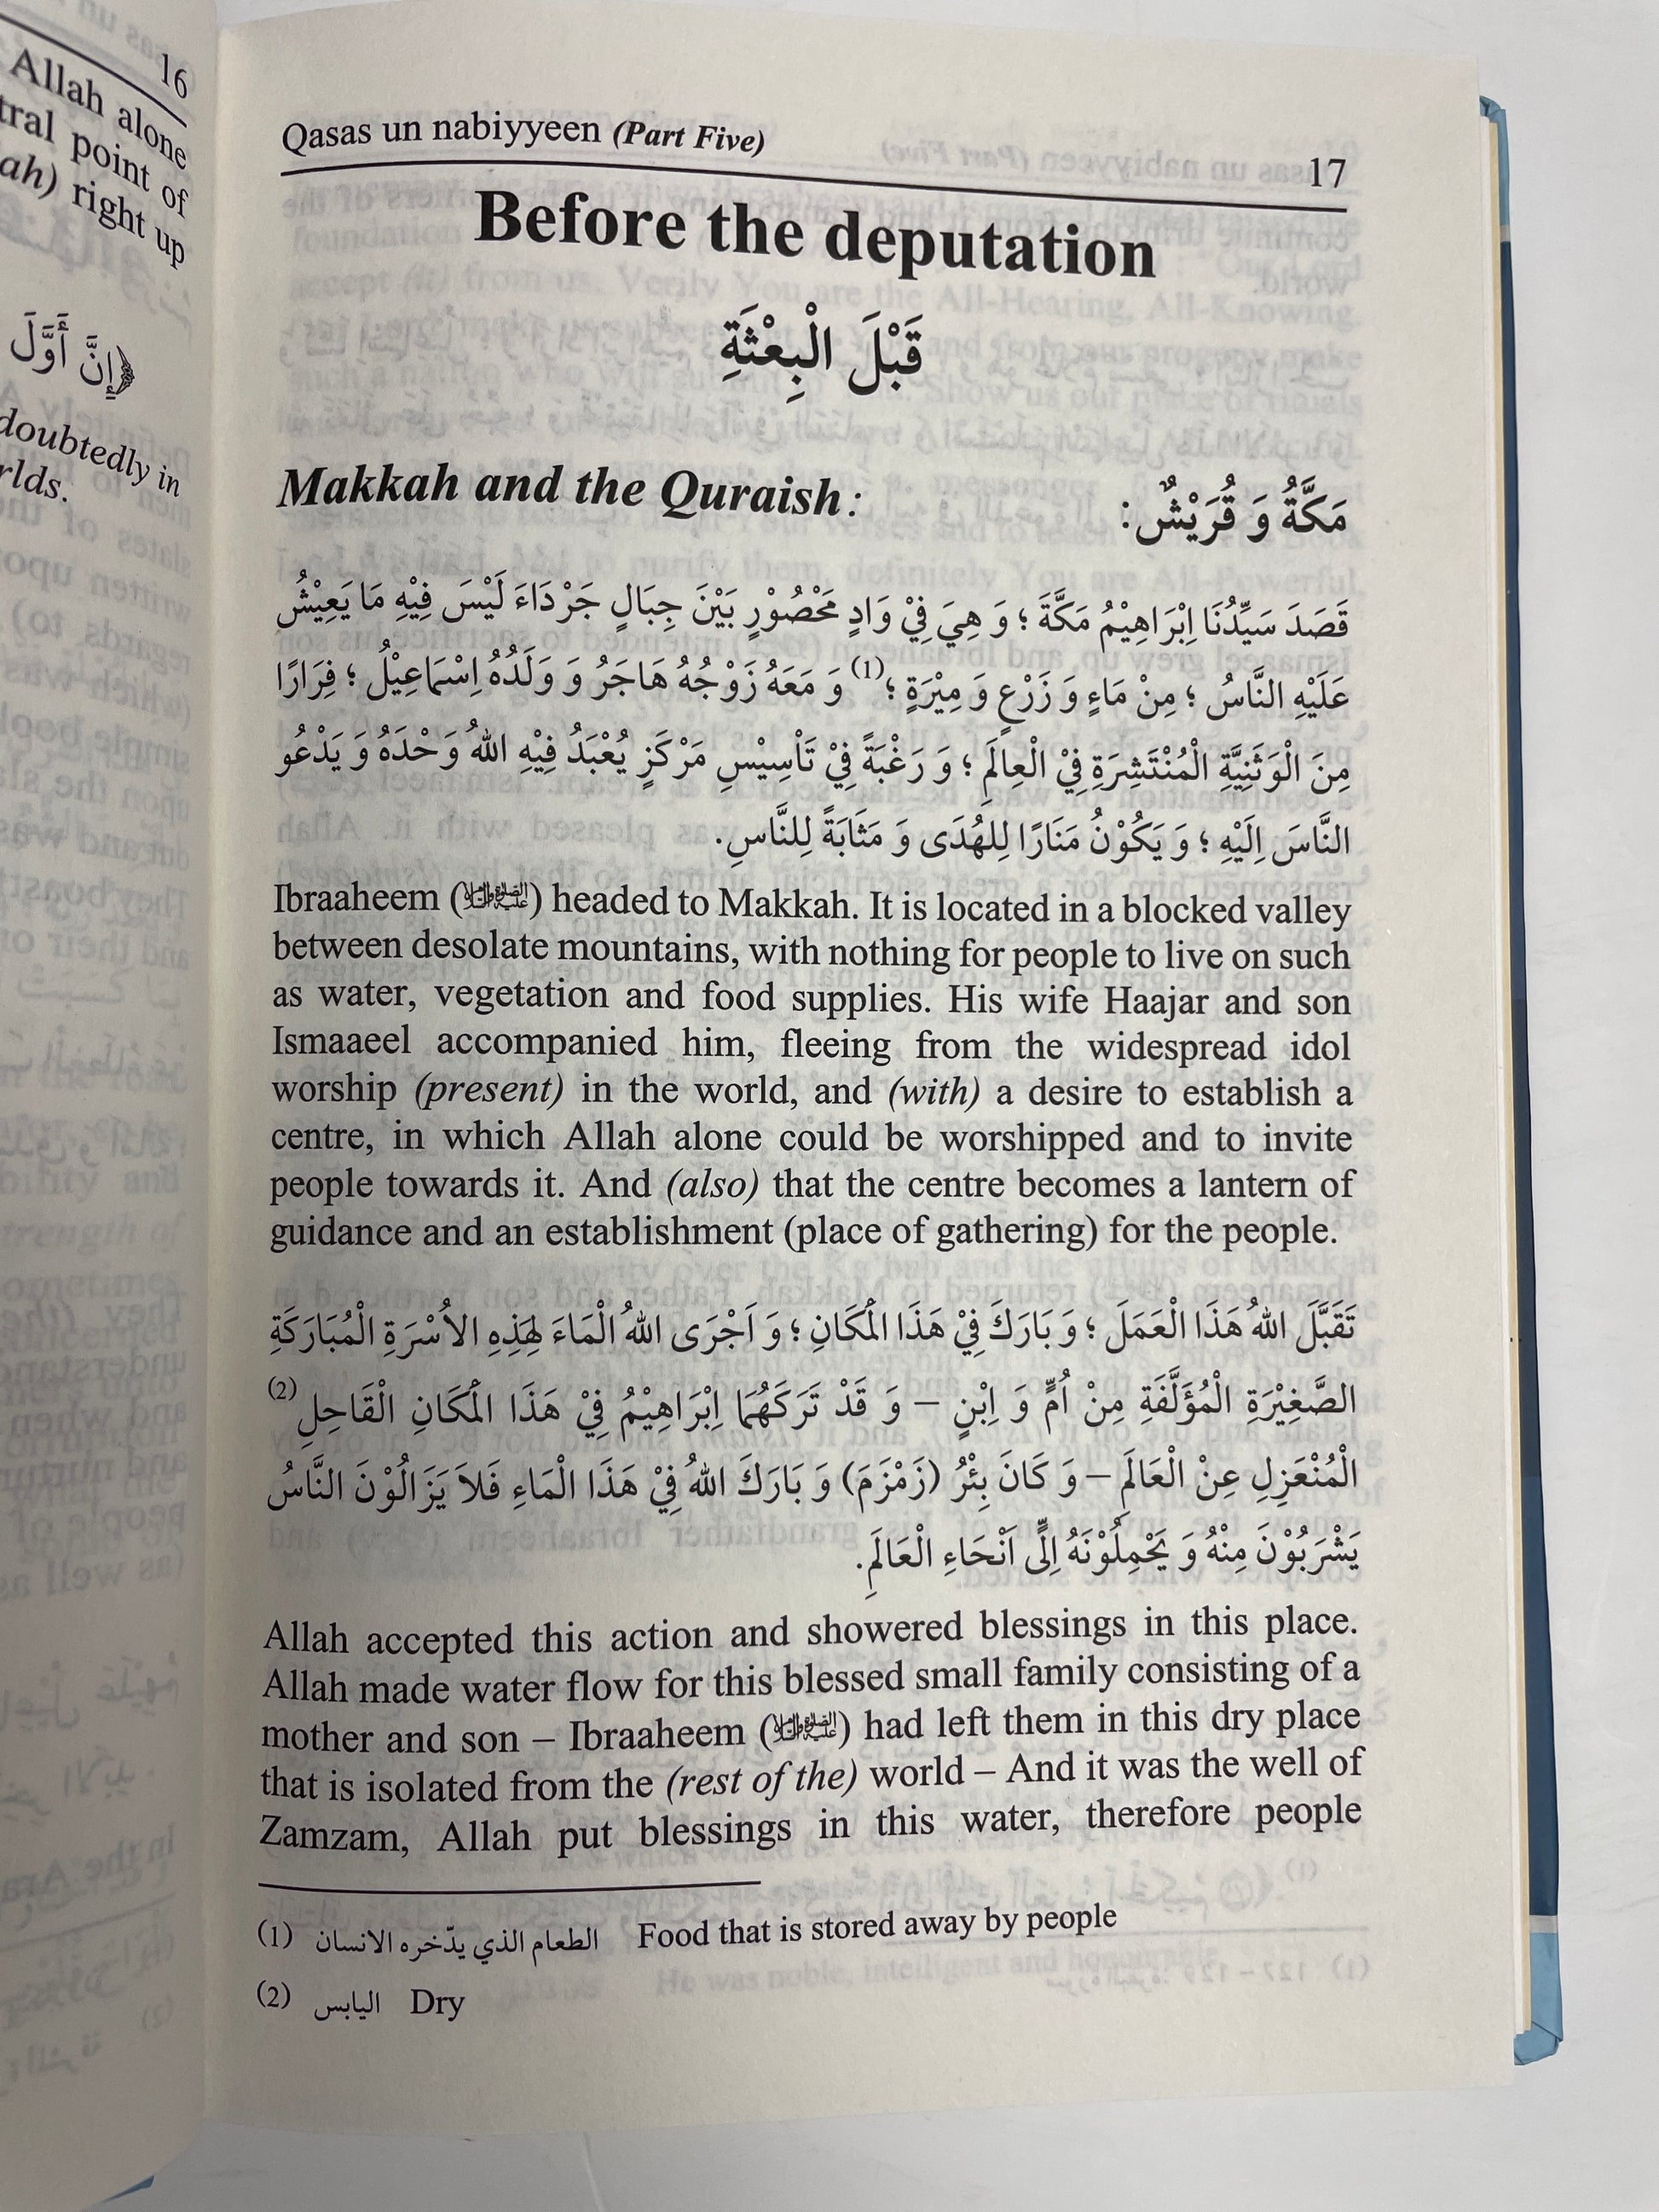 16
Allah alone
tral point of
ah) right up
﴿إِنَّ أَوَّلَ
doubtedly in
rlds.
Qasas un nabiyyeen (Part Five)
17
Before the deputation
قَبْلَ الْبِعْثَةِ
Makkah and the Quraish:
مَكَّةُ وَ قُرَيْشٌ:
قَصَدَ سَيِّدُنَا اِبْرَاهِيْمُ مَكَّةَ ؛ وَ هِيَ فِيْ وَادٍ مَحْصُوْرٍ بَيْنَ جِبَالٍ جَرْدَاءَ لَيْسَ فِيْهِ مَا يَعِيْشُ
عَلَيْهِ النَّاسُ ؛ مِنْ مَاءٍ وَ زَرْعٍ وَ مِيْرَةٍ ؛(1) وَ مَعَهُ زَوْجُهُ هَاجَرُ وَ وَلَدُهُ اِسْمَاعِيْلُ ؛ فِرَارًا
مِنَ الْوَثَنِيَّةِ الْمُنْتَشِرَةِ فِيْ الْعِالَمِ ؛ وَ رَغْبَةً فِيْ تَاْسِيْسِ مَرْكَزٍ يُعْبَدُ فِيْهِ اللهُ وَحْدَهُ وَ يَدْعُو
النَّاسَ اِلَيْهِ ؛ وَ يَكُوْنُ مَنَارًا لِلهُدَى وَ مَثَابَةً لِلنَّاسِ.
Ibraaheem (عليه الصلاة والسلام) headed to Makkah. It is located in a blocked valley
between desolate mountains, with nothing for people to live on such
as water, vegetation and food supplies. His wife Haajar and son
Ismaaeel accompanied him, fleeing from the widespread idol
worship (present) in the world, and (with) a desire to establish a
centre, in which Allah alone could be worshipped and to invite
people towards it. And (also) that the centre becomes a lantern of
guidance and an establishment (place of gathering) for the people.
تَقَبَّلَ اللهُ هَذَا الْعَمَلَ ؛ وَ بَارَكَ فِيْ هَذَا الْمَكَانِ ؛ وَ اَجْرَى اللهُ الْمَاءَ لِهَذِهِ الاُسْرَةِ الْمُبَارَكَةِ
الصَّغِيْرَةِ الْمُؤَلَّفَةِ مِنْ اُمٍّ وَ اِبْنٍ – وَ قَدْ تَرَكَهُمَا اِبْرَاهِيْمُ فِيْ هَذَا الْمَكَانِ الْقَاحِلِ(2)
الْمُنْعَزِلِ عِنْ الْعَالَمِ – وَ كَانَ بِئْرُ (زَمْزَمَ) وَ بَارَكَ اللهُ فِيْ هَذَا الْمَاءِ فَلاَ يَزَالُوْنَ النَّاسُ
يَشْرَبُوْنَ مِنْهُ وَ يَحْمِلُوْنَهُ اِلَّى اَنْحَاءِ الْعَالَمِ.
Allah accepted this action and showered blessings in this place.
Allah made water flow for this blessed small family consisting of a
mother and son – Ibraaheem (عليه الصلاة والسلام) had left them in this dry place
that is isolated from the (rest of the) world – And it was the well of
Zamzam, Allah put blessings in this water, therefore people
(1) الطعام الذي يدّخره الانسان Food that is stored away by people
(2) اليابس Dry